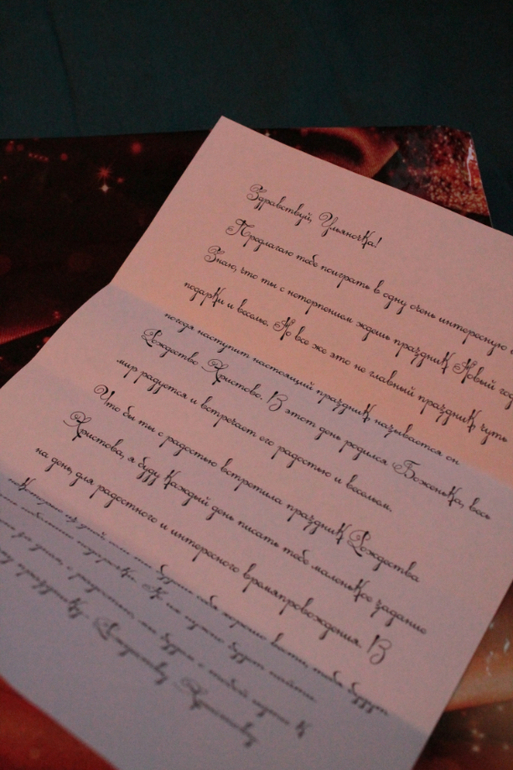 Здравствуй, Ульяночка!
Предлагаю тебе поиграть в одну очень интересную
Знаю, что ты с нетерпением ждешь праздник Новый год
подарки и веселье. Но все же это не главный праздник чуть
погодя наступит настоящий праздник называется он
Рождество Христово. В этот день родился Боженька, весь
мир радуется и встречает его радостью и весельем.
Что бы ты с радостью встретила праздник Рождества
Христова, я буду каждый день писать тебе маленькое задание
на день, для радостного и интересного времяпровождения. В
тебе будут
нужно будет найти
с тобой идти к
празднику Рождеству Христову